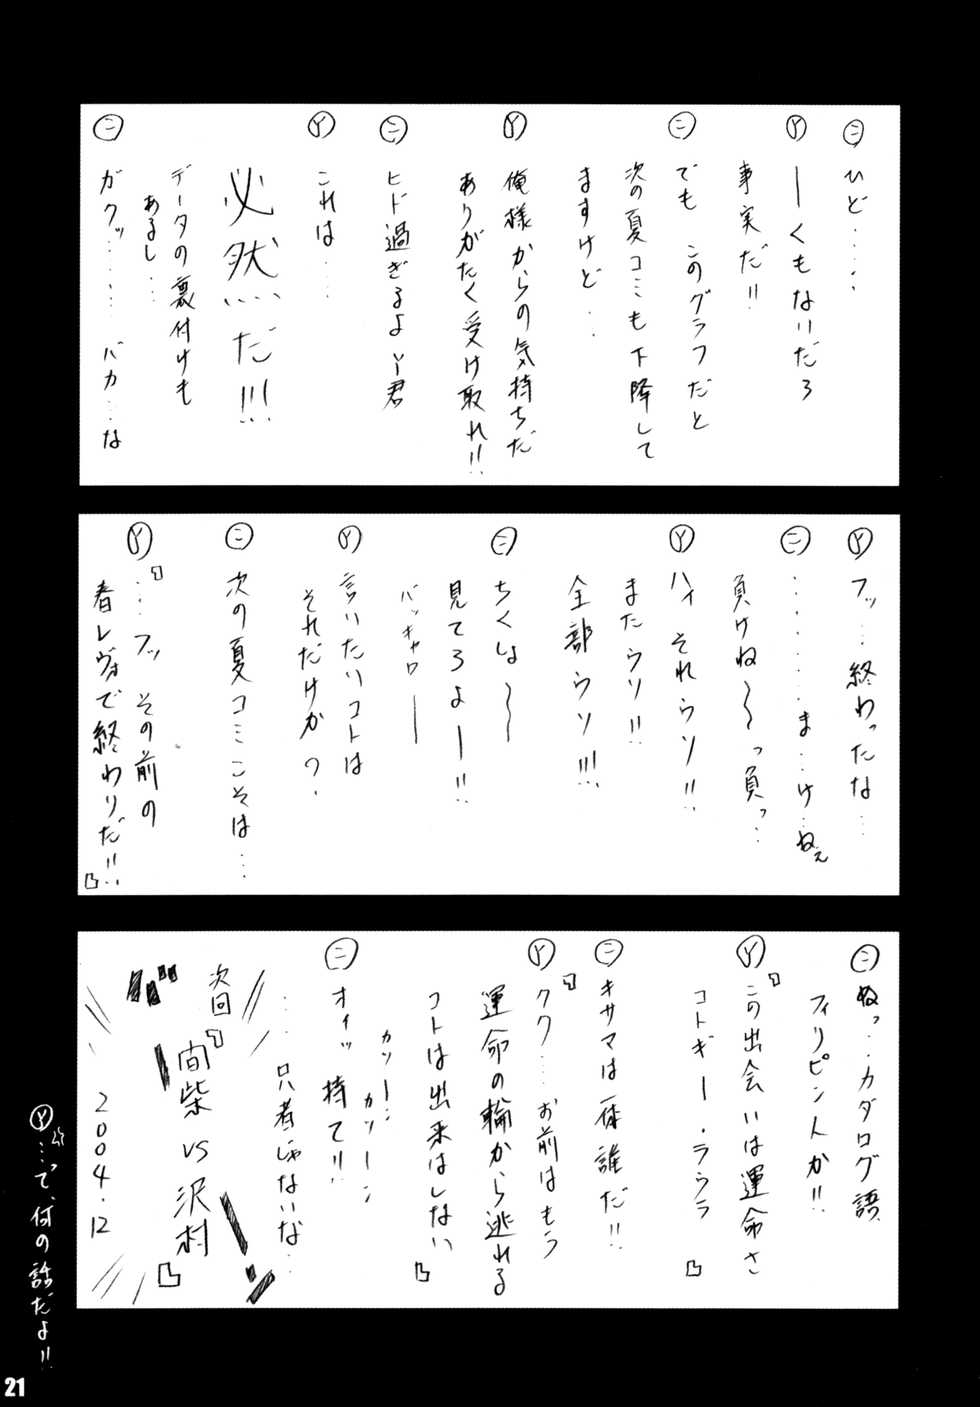 ㊁ ひど‥‥‥
Ⓨ ーくもないだろ
事実だ!!
㊁ でも このグラフだと
次の夏コミも下降して
ますけど‥‥
Ⓨ 俺様からの気持ちだ
ありがたく受け取れ!!
㊁ ヒド過ぎるよY君
Ⓨ これは‥‥
必然だ!!!
データの裏付けも
あるし‥‥
㊁ ガクッ‥‥‥ バカ‥な
Ⓨ フッ‥‥終わったな‥‥
㊁ ‥‥‥‥‥ま‥け‥ねぇ
負けね〜〜っ負っ‥‥
Ⓨ ハイ それウソ!!
またウソ!!
全部ウソ!!!
㊁ ちくしょ〜〜
見てろよー!!
バッキャローー
Ⓨ 言いたいコトは
それだけか?
㊁ 次の夏コミこそは‥‥
Ⓨ 『‥‥フッ その前の
春レヴォで終わりだ!!』
㊁ ぬっ‥‥カダログ語
フィリピン人か!!
Ⓨ 『この出会いは運命さ
コトギー・ラララ』
㊁ キサマは一体誰だ!!
Ⓨ 『クク‥‥お前はもう
運命の輪から逃れる
コトは出来はしない』
カツーン カツーン
㊁ オイッ 待て!!
‥‥只者じゃないな‥‥
次回『間柴 vs 沢村』
バーン
2004.12
Ⓨ ‥‥って、何の話だよ!!
21